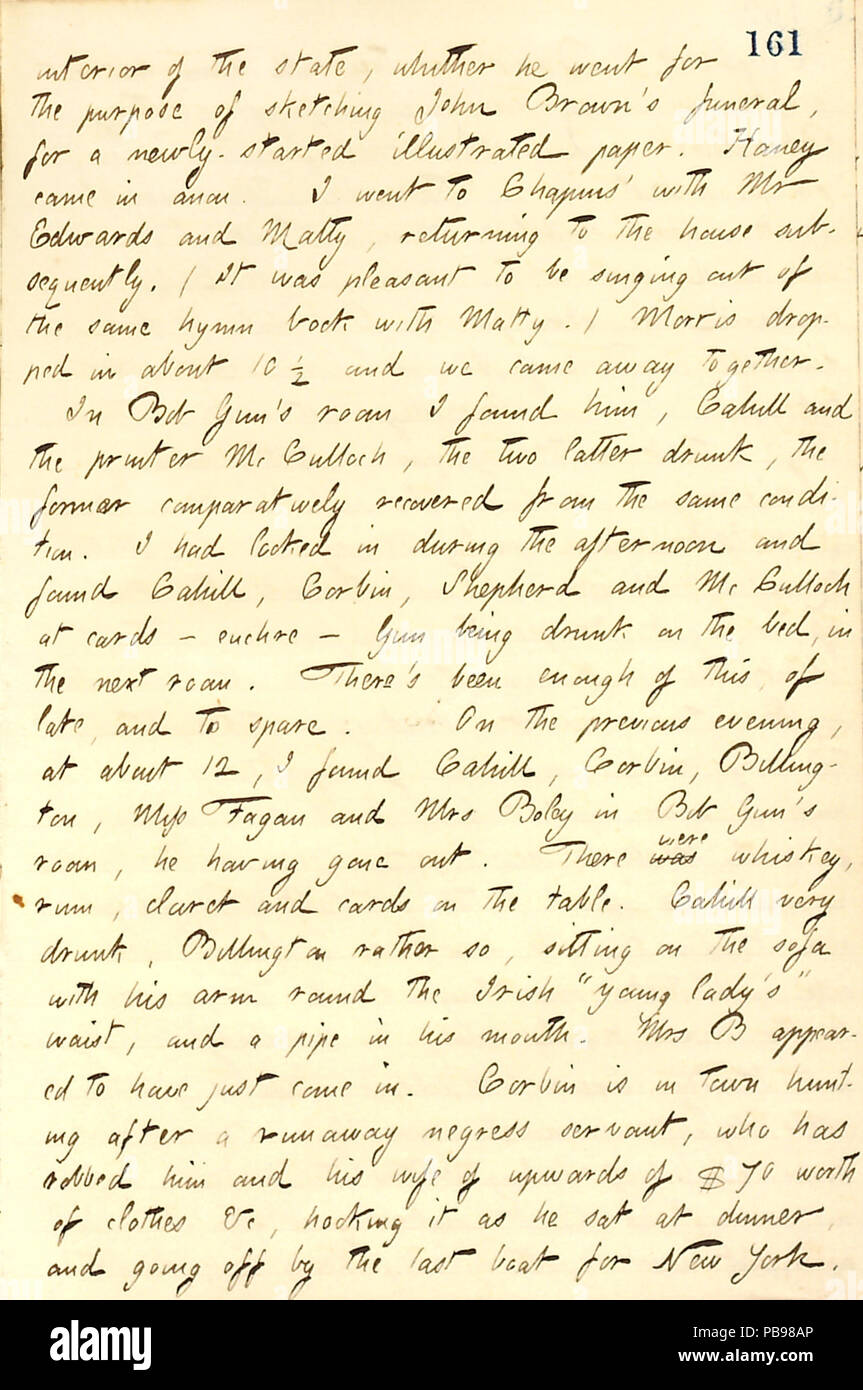 161
interior of the state, whither he went for
the purpose of sketching John Brown's funeral,
for a newly-started illustrated paper. Haney
came in anon. I went to Chapins' with Mr
Edwards and Matty, returning to the house sub-
sequently. ( It was pleasant to be singing out of
the same hymn book with Matty. ) Morris drop-
ped in about 10 ½ and we came away together.
In Bob Gun's room I found him, Cahill and
the printer Mc Culloch, the two latter drunk, the
former comparatively recovered from the same condi-
tion. I had looked in during the afternoon and
found Cahill, Corbin, Shepherd and Mc Culloch
at cards — euchre — Gun being drunk on the bed, in
the next room. There's been enough of this, of
late, and to spare. On the previous evening,
at about 12, I found Cahill, Corbin, Billing-
ton, Miss Fagan and Mrs Boley in Bob Gun's
room, he having gone out. There was were whiskey,
rum, claret and cards on the table. Cahill very
drunk, Billington rather so, sitting on the sofa
with his arm round the Irish "young lady's"
waist, and a pipe in his mouth. Mrs B appear-
ed to have just come in. Corbin is in town hunt-
ing after a runaway negress servant, who has
robbed him and his wife of upwards of $70 worth
of clothes &c, hooking it as he sat at dinner,
and going off by the last boat for New York.
alamy
Image ID: PB98AP
www.alamy.com